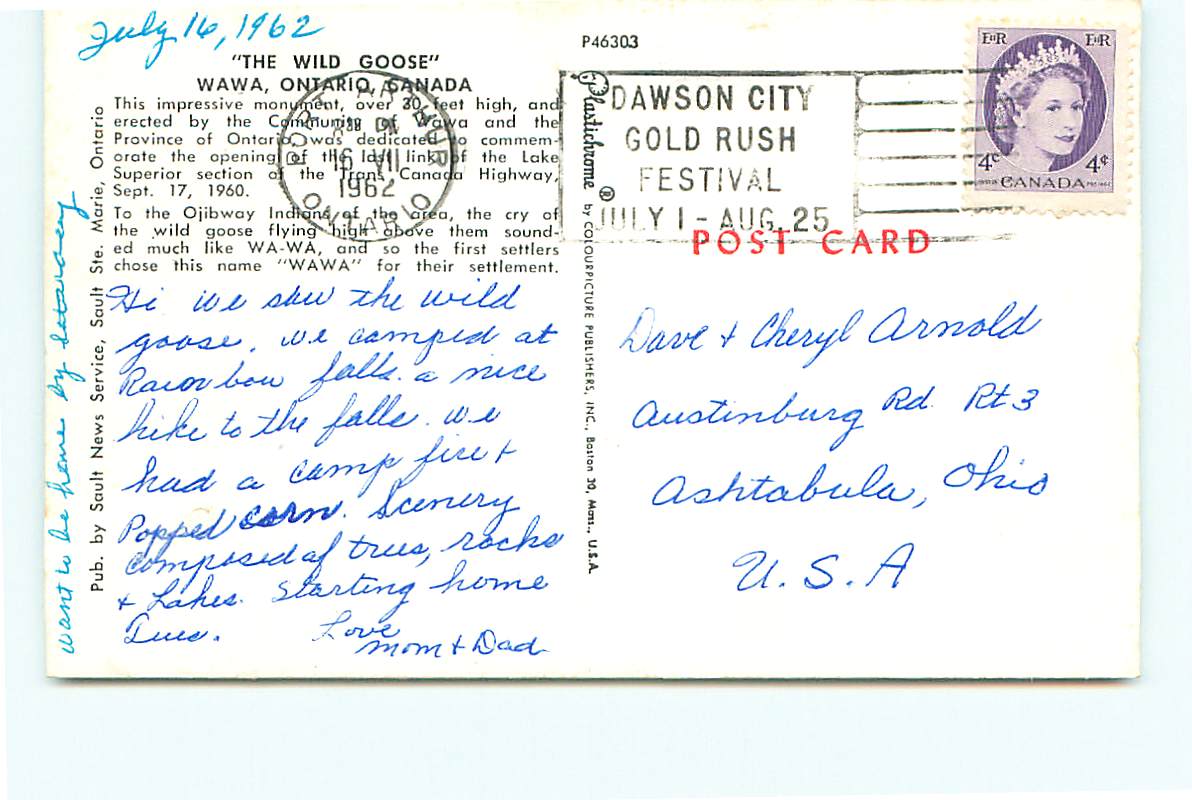 July 16, 1962
"THE WILD GOOSE"
WAWA, ONTARIO, CANADA
This impressive monument, over 30 feet high, and
erected by the Community of Wawa and the
Province of Ontario, was dedicated to commem-
orate the opening of the last link of the Lake
Superior section of the Trans Canada Highway,
Sept. 17, 1960.
To the Ojibway Indians of the area, the cry of
the wild goose flying high above them sound-
ed much like WA-WA, and so the first settlers
chose this name "WAWA" for their settlement.
Hi we saw the wild
goose. we camped at
Rainbow falls. a nice
hike to the falls. we
had a camp fire +
Popped corn. Scenery
composed of trees, rocks
+ Lakes. Starting home
Tues.
Love
Mom + Dad
want to be home by Saturday
Pub. by Sault News Service, Sault Ste. Marie, Ontario
P46303
Plastichrome ® by COLOURPICTURE PUBLISHERS, INC., Boston 30, Mass., U.S.A.
PORT ARTHUR
PM
16 VII
1962
ONTARIO
DAWSON CITY
GOLD RUSH
FESTIVAL
JULY 1 - AUG. 25
EIIR EIIR
4¢ 4¢
CANADA
POST CARD
Dave + Cheryl Arnold
Austinburg Rd. Rt 3
Ashtabula, Ohio
U. S. A